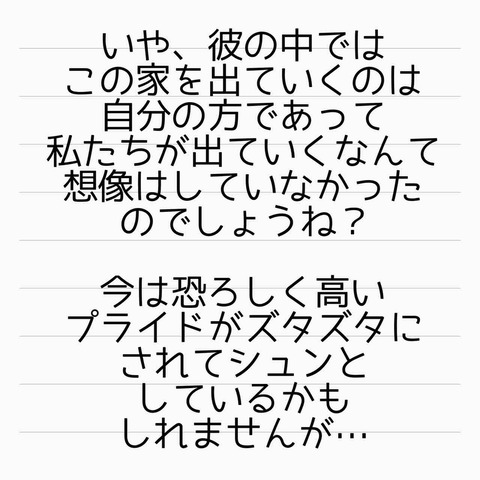 いや、彼の中では
この家を出ていくのは
自分の方であって
私たちが出ていくなんて
想像はしていなかった
のでしょうね？
今は恐ろしく高い
プライドがズタズタに
されてシュンと
しているかも
しれませんが…